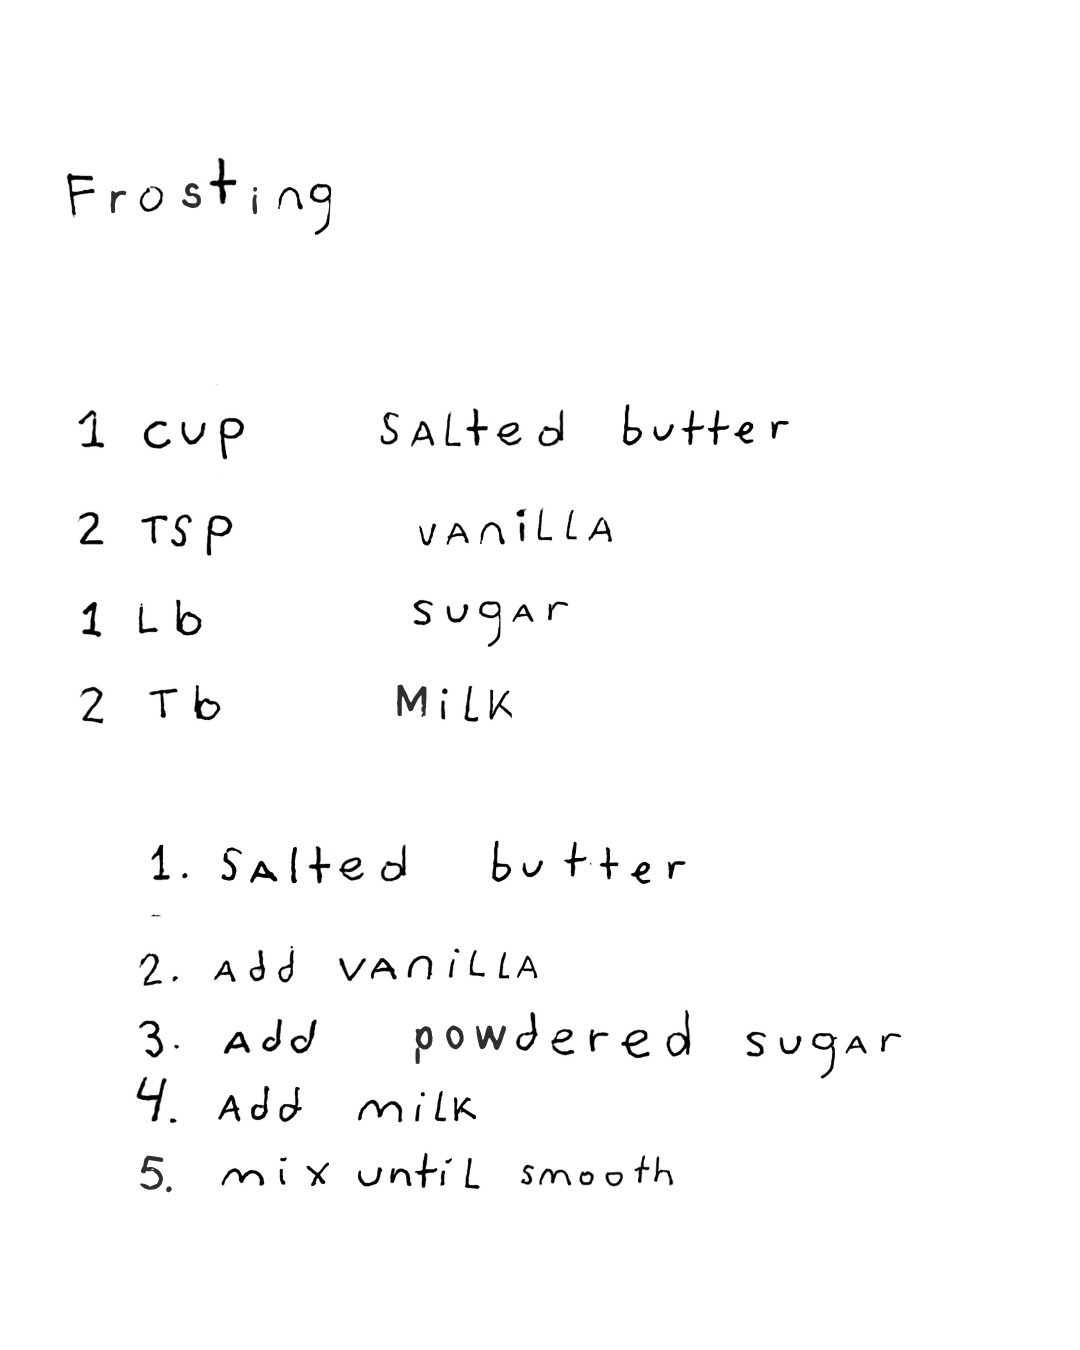 Frosting
1 cup salted butter
2 TSP vanilla
1 Lb sugar
2 Tb Milk
1. Salted butter
2. Add vanilla
3. Add powdered sugar
4. Add milk
5. mix until smooth